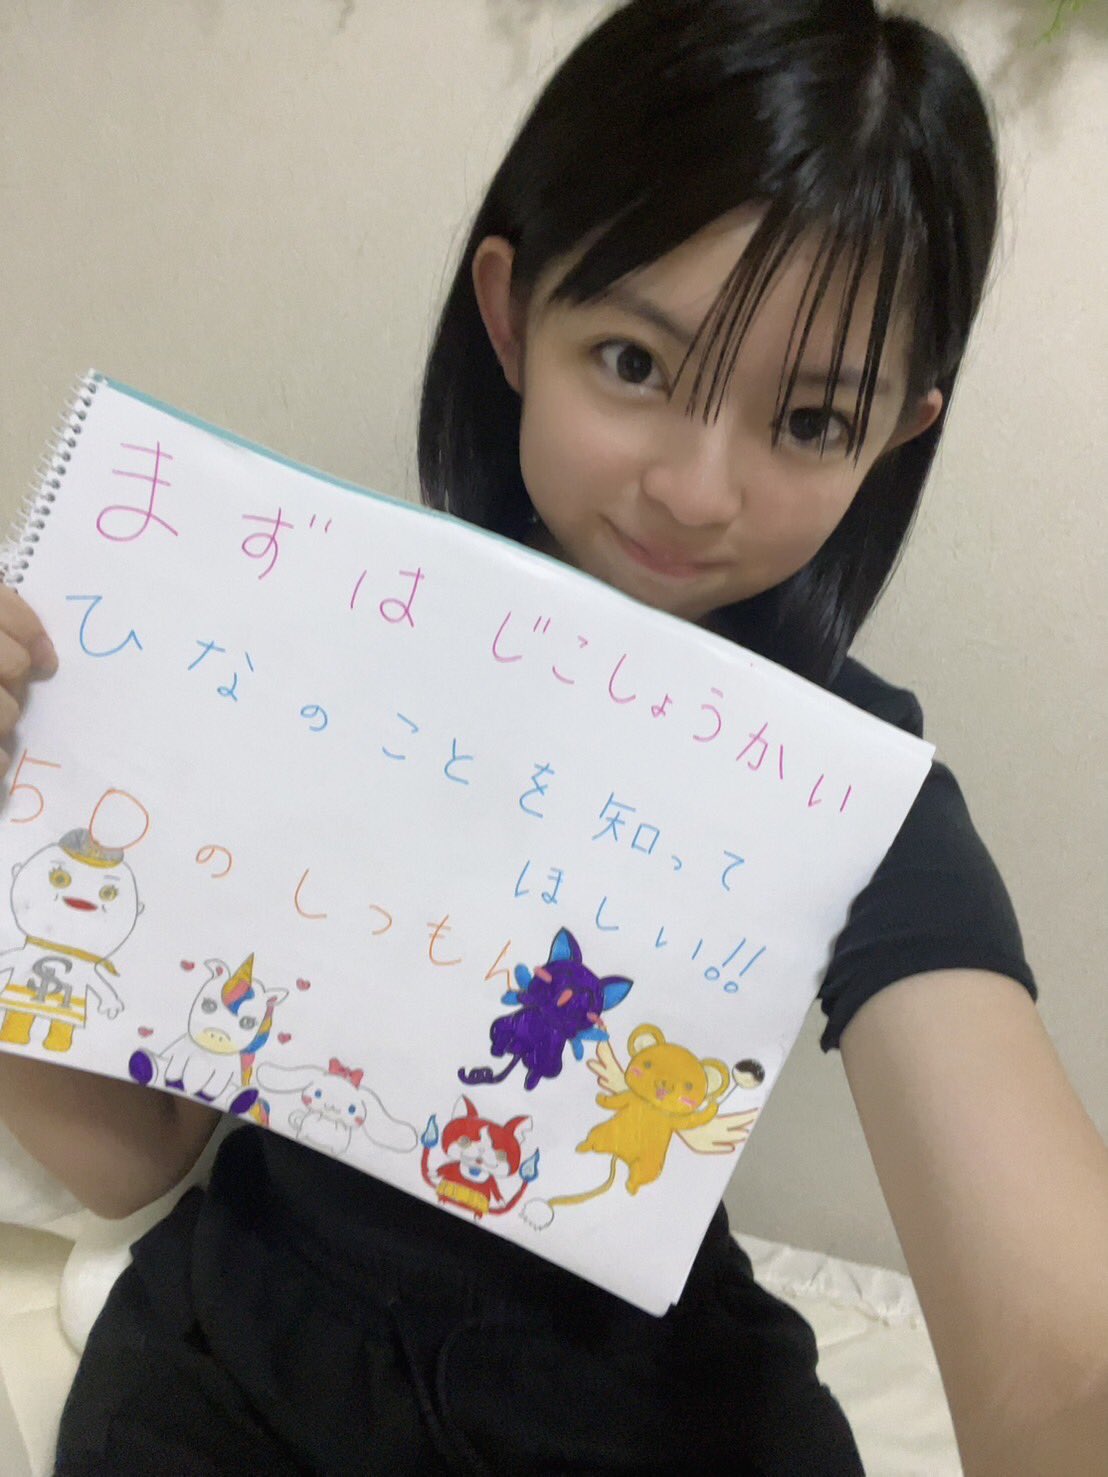 まずはじこしょうかい
ひなのことを知って
ほしい!!
50のしつもん
SH